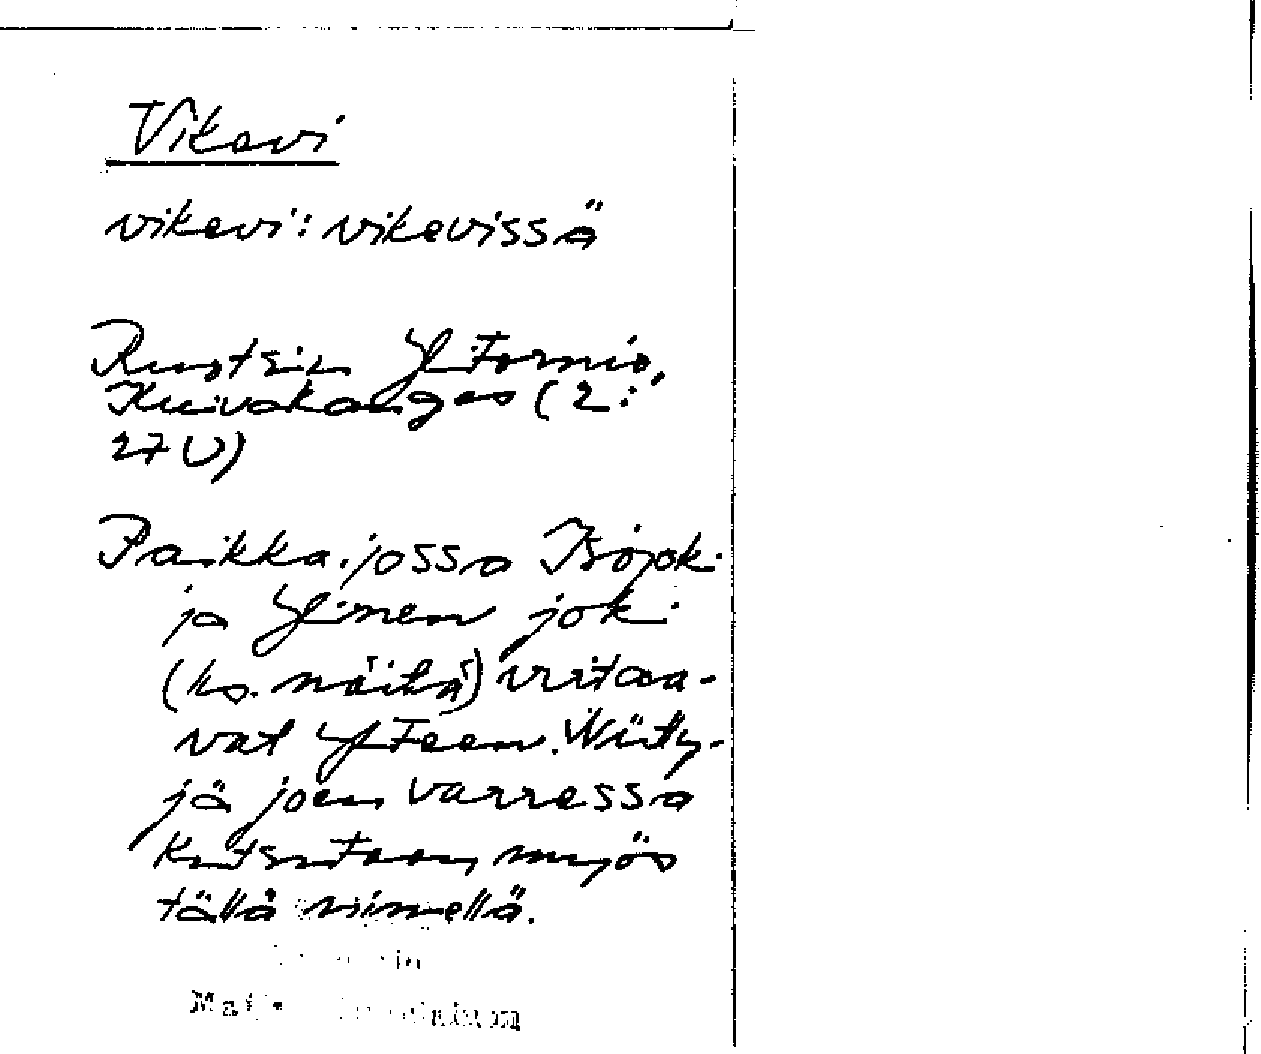 Vikevi
vikevi: vikevissä
Ruotsin Ylitornio,
Kuivakangas (2:
27U)
Paikka, jossa Isojoki
ja Ylinen joki
(ks. näitä) virtaa-
vat yhteen. Niitty-
jä joen varressa
kutsutaan myös
tällä nimellä.